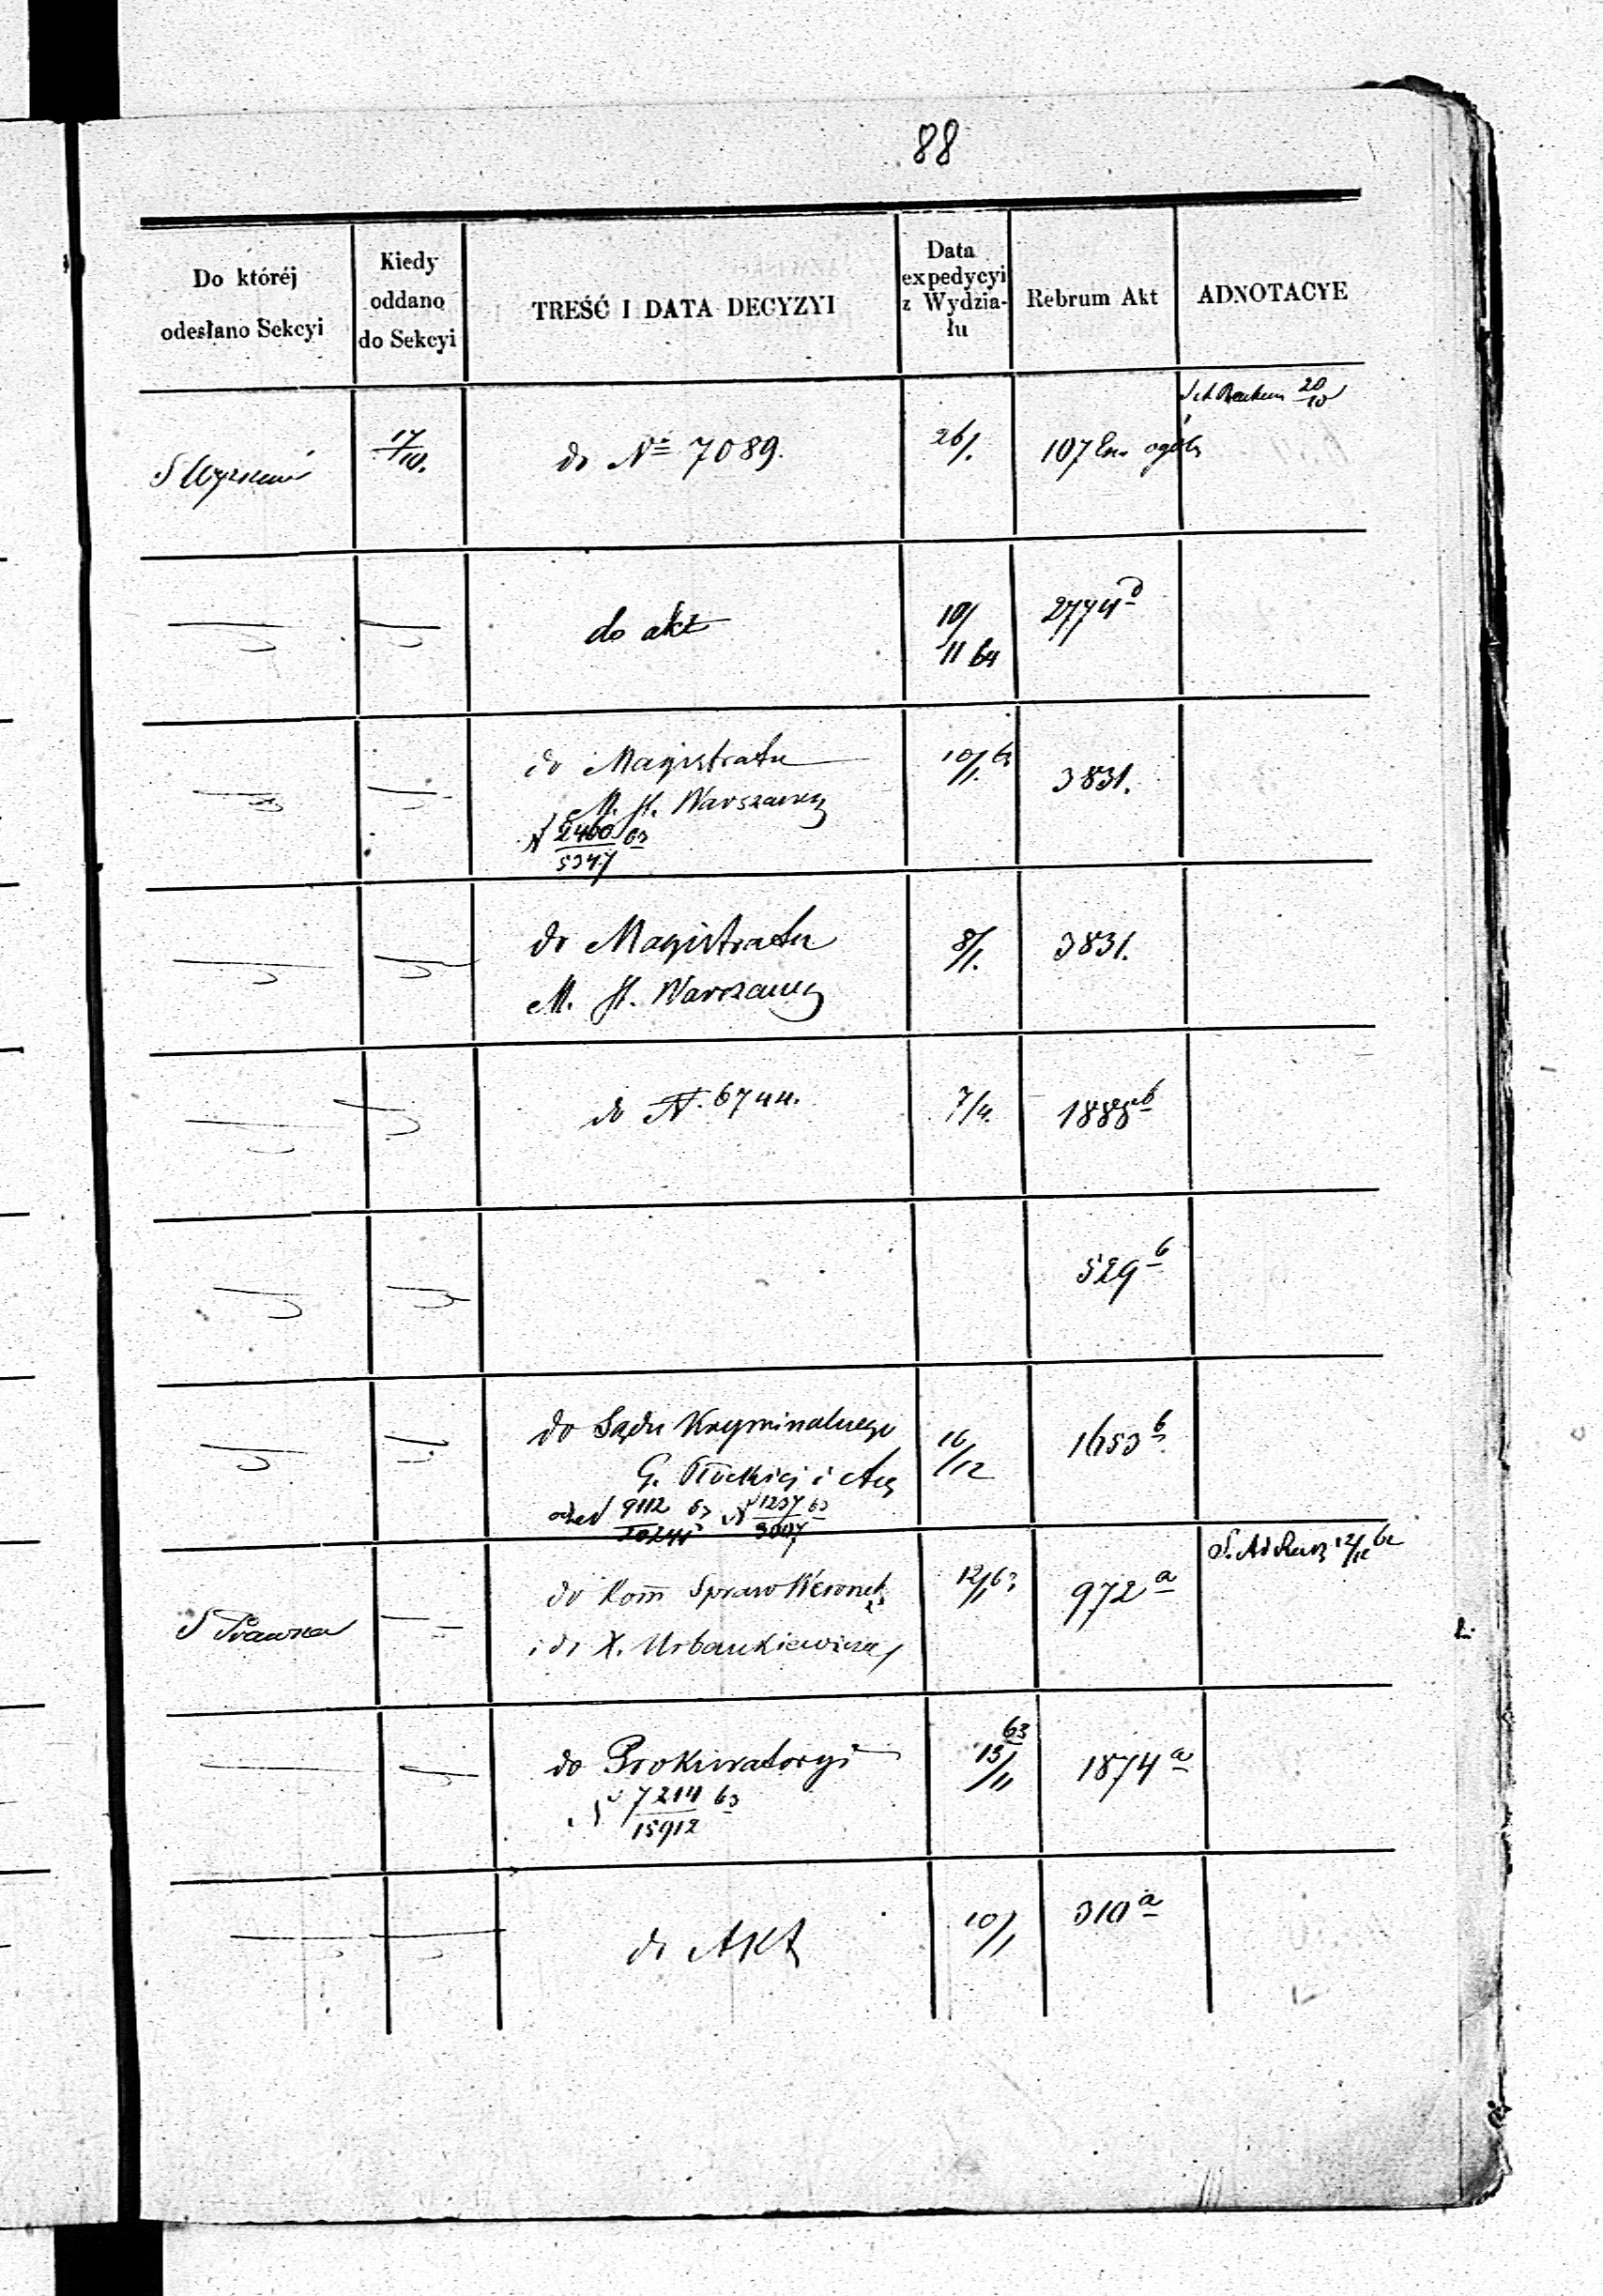 88
Do któréj
odesłano Sekcyi
Kiedy
oddano
do Sekcyi
TREŚĆ I DATA DECYZYI
Data
expedycyi
z Wydzia-
łu
Rebrum Akt
ADNOTACYE
20/10
S
17/10.
do № 7089.
26/1.
107 ogól
do akt
10/
11 64
2774
do Magistratu
M. St. Warszawy
N 2460/5347 63
10/1 63
3831.
do Magistratu
M. St. Warszawy
8/1.
3831.
do N. 6744.
7/4.
1885 b
529 b
do Sądu Kryminalnego
G. Płockiej i Aug
9112 63 N 1237 63
16/12
1653 b
S. 12/12 62
S Prawna
do Kom Spraw Wewnęt
i do X. Urbankiewicza
12/1 63
972 a
do Prokuratoryi
N 7214/15912 63
13/11 63
1874 a
do Akt
10/1
310 a